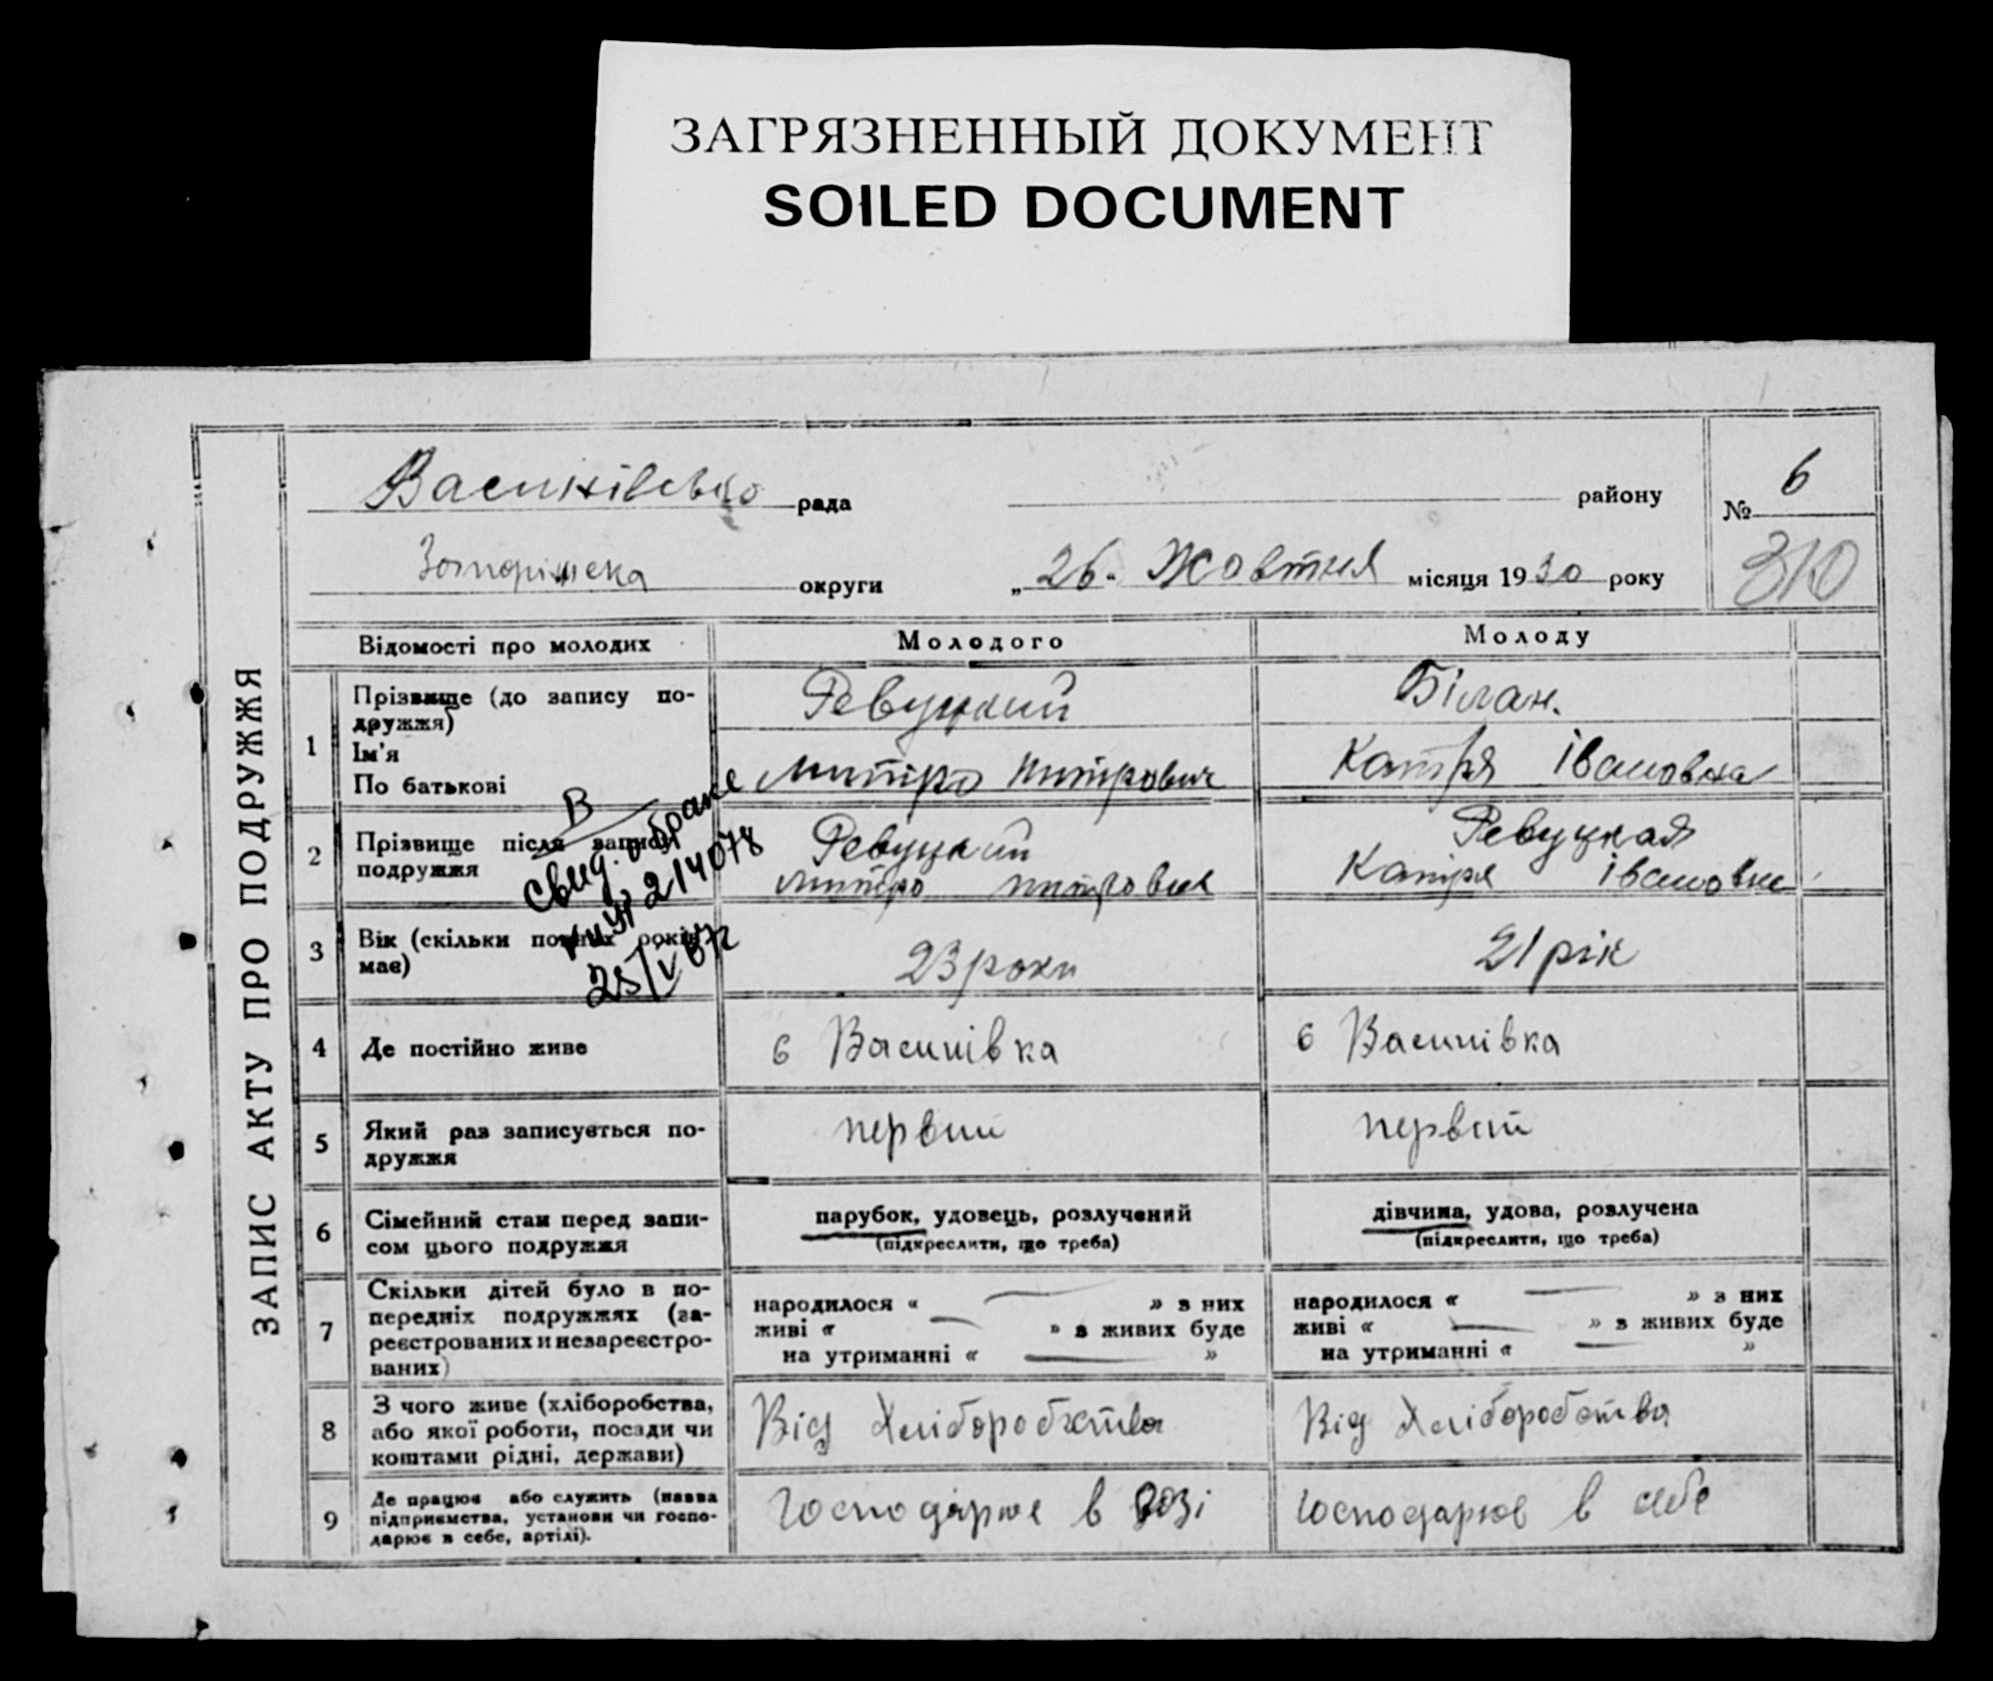 ЗАГРЯЗНЕННЫЙ ДОКУМЕНТ
SOILED DOCUMENT
ЗАПИС АКТУ ПРО ПОДРУЖЖЯ
рада району № 6
округи „26. Жовтня місяця 1930 року 310
Відомості про молодих Молодого Молоду
1 Прізвище (до запису по-
дружжя)
Ім'я
По батькові
Ревуцкий Білан.
Митро Митрович Катря Івановна
2 Прізвище після запису
подружжя
Ревуцкий Ревуцкая
Митро Митрович Катря Івановна
В
Свид. о браке
214078
25/V
3 Вік (скільки повних років
має)
23 роки 21 рік
4 Де постійно живе в Василівка в Василівка
5 Який раз записується по-
дружжя
первий первий
6 Сімейний стан перед запи-
сом цього подружжя
парубок, удовець, розлучений дівчина, удова, розлучена
(підкреслити, що треба) (підкреслити, що треба)
7 Скільки дітей було в по-
передніх подружжях (за-
реєстрованих и незареєстро-
ваних)
народилося « — » з них народилося « — » з них
живі « — » з живих буде живі « — » з живих буде
на утриманні « — » на утриманні « — »
8 З чого живе (хліборобства,
або якої роботи, посади чи
коштами рідні, держави)
Від Хліборобства Від Хліборобства
9 Де працює або служить (назва
підприємства, установи чи госпо-
дарює в себе, артілі).
Господарює в созі Господарює в себе